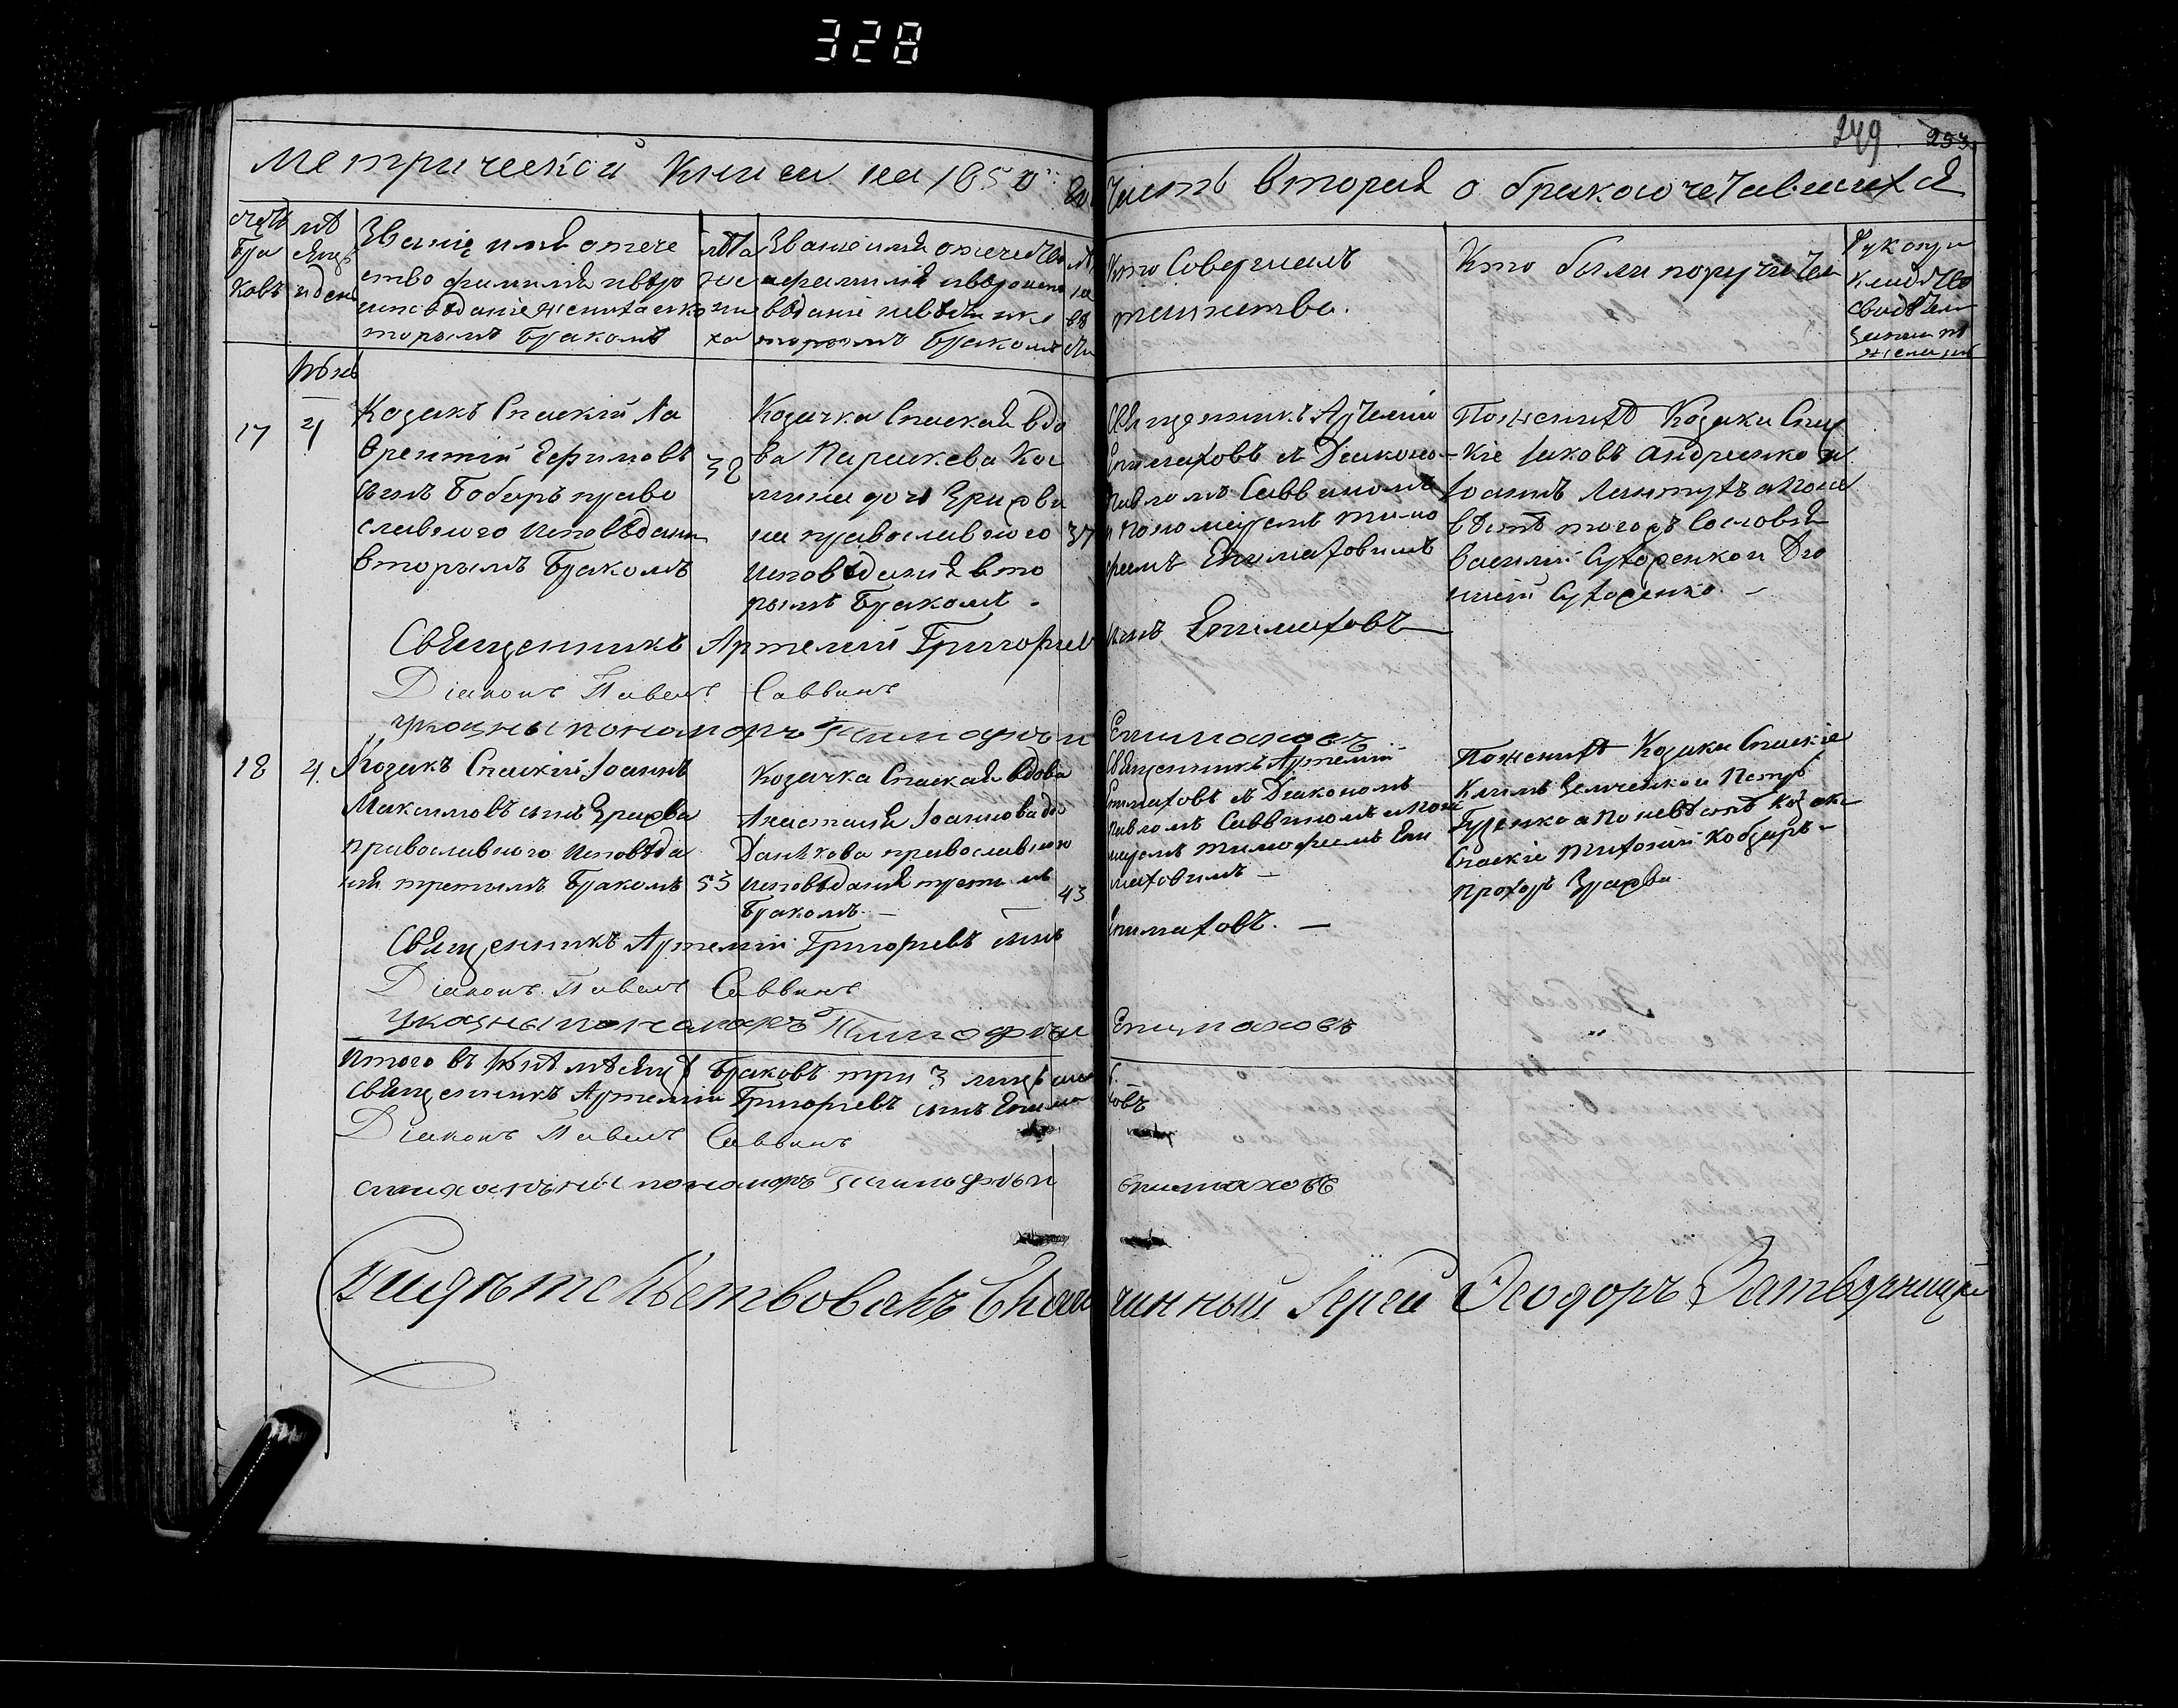 328
249 253
Метрической Книги на 1850 го
Часть вторая о бракосочетавшихся
счетъ
бра
ковъ
мѣ
сяцъ
и день
Званіе имя отече
ство фамилія и вѣро
исповѣданіе жениха и ко
торымъ бракомъ
лѣта
же
ни
ха
Званіе имя отечество
и фамилія и вѣроиспо
вѣданіе невѣсты и ко
торымъ бракомъ
лѣ
не
вѣ
сты
Кто совершалъ
таинство.
Кто были поручители
Рукопри
кладство
свидѣтел
записи по
желанію
Іюнь
17
4
Козакъ Спаскій Ла
врентій Ефимовъ
сынъ Бобырь право
славного исповѣданія
вторымъ бракомъ
32
Козачка Спаская вдо
ва Параскева Кос
мина дочь
на православного
исповѣданія вто
рымъ бракомъ.
37
Священникъ Артемій
Епимаховъ съ Діакономъ
Павломъ Саввиномъ
и Пономаремъ Тимо
феемъ Епимаховимъ
По женихѣ Козаки Спас
кіе Іаковъ Андріенко и
Іоаннъ а по не
вѣстѣ того жъ сословія
Василій Сухоренко и
Сухоренко. –
Священникъ Артемій Григорьев сынъ Епимаховъ
Діаконъ Павелъ Саввинъ
указны пономарь Тимофѣи Епимаховъ
18
4.
Козакъ Спаскій Іоаннъ
Максимовъ сынъ
православного исповѣда
нія третимъ бракомъ
53
Козачка Спаская вдова
Анастасія Іоаннова до
православного
исповѣданія третимъ
бракомъ. –
43
Священникъ Артемій
Епимаховъ съ Діакономъ
Павломъ Саввиномъ и Поно
маремъ Тимофеемъ Епи
маховимъ –
По женихѣ Козаки Спаскіе
Климъ и Петръ
а по невѣстѣ Козаки
Спаскіе Кобзарь –
Священникъ Артемій Григорьевъ сынъ Епимаховъ. –
Діаконъ Павелъ Саввинъ
указны пономарь Тимофѣи Епимаховъ
Итого въ Іюнѣ мѣсяцѣ браковъ три 3
Священникъ Артемій Григорьевъ сынъ Епимаховъ
Діаконъ Павелъ Саввинъ
стихарны пономарь Тимофѣи Епимаховъ
Свидѣтельствовалъ Благочинный Іерей Ѳеодоръ